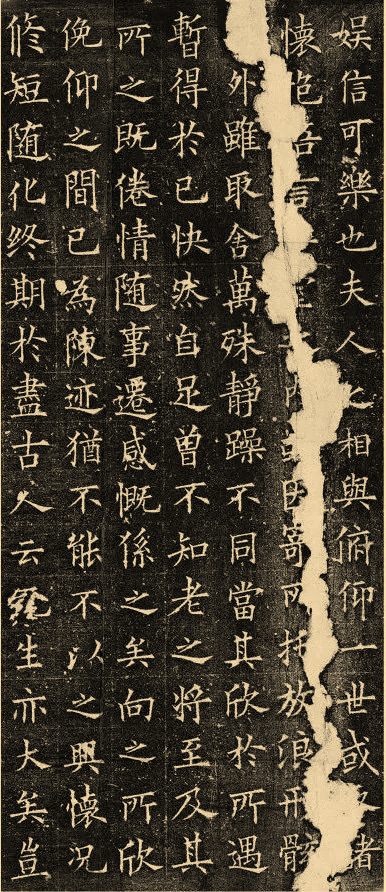 娱信可樂也夫人之相與俯仰一世或諸
懷抱悟言因寄所托放浪形骸
外雖取舍萬殊静躁不同當其欣於所遇
暫得於己快然自足曽不知老之将至及其
所之既倦情随事遷感慨係之矣向之所欣
俛仰之間已為陳迹猶不能不以之興懷况
修短随化终期於盡古人云生亦大矣豈